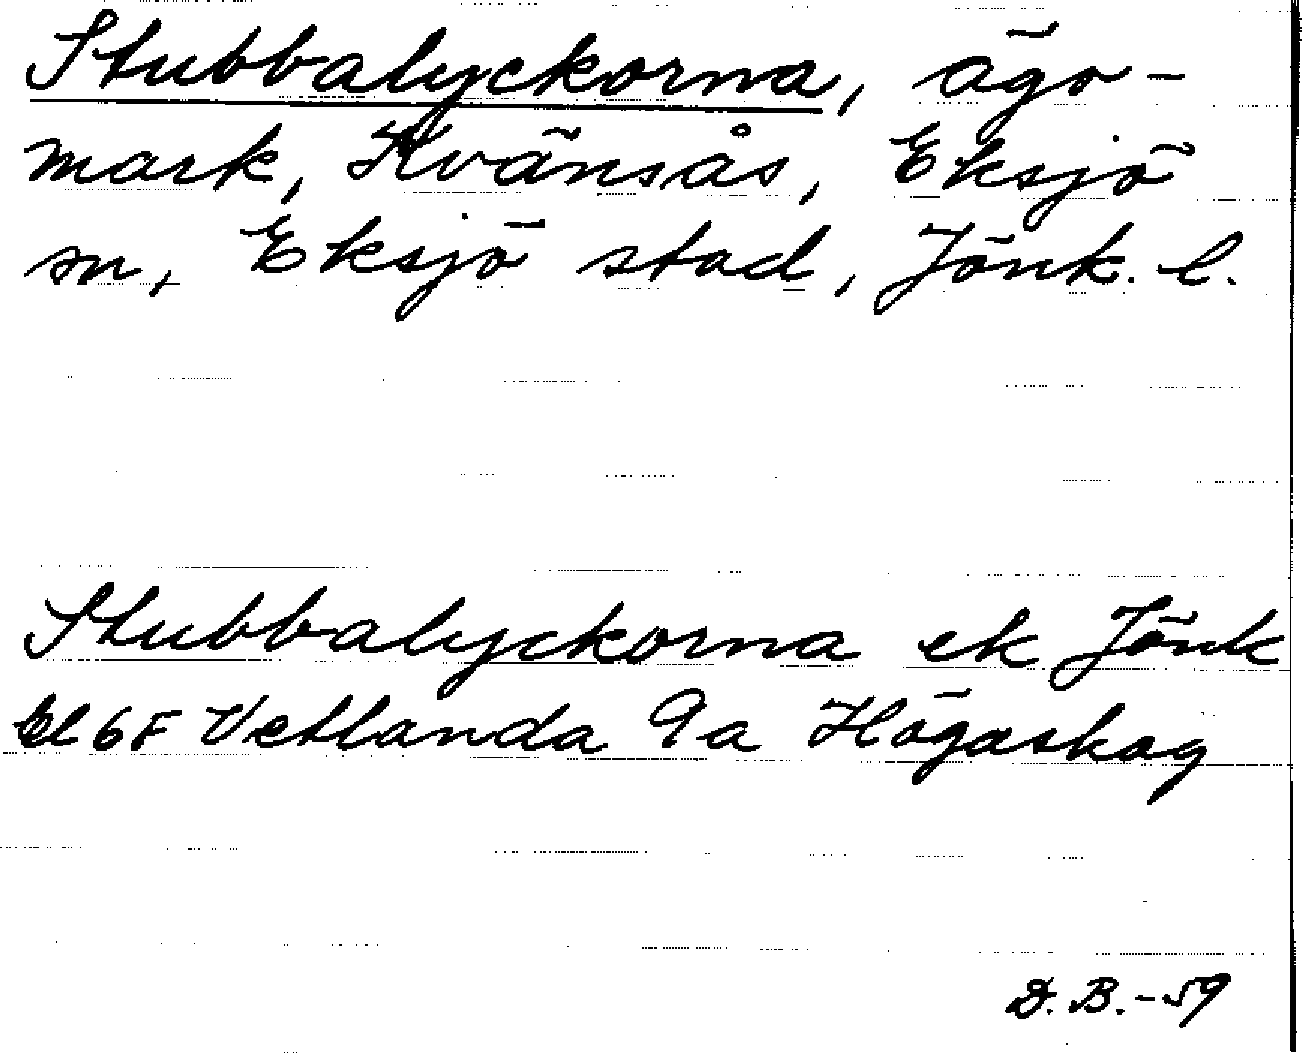 Stubbalyckorna, ägo-
mark, Kvänsås, Eksjö
sn, Eksjö stad, Jönk. l.
Stubbalyckorna ek Jönk
6F Vetlanda 9a Högaskog
D.B.-59